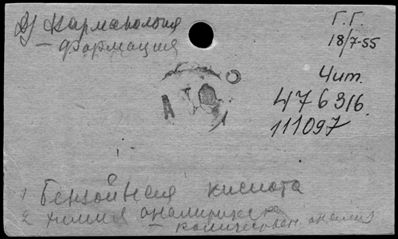 Фармакология
— фармация
Г. Г.
18/7-55
Чит.
476316.
111097
1 Бензойная кислота
2 химия аналитическ
— количествен. анализ